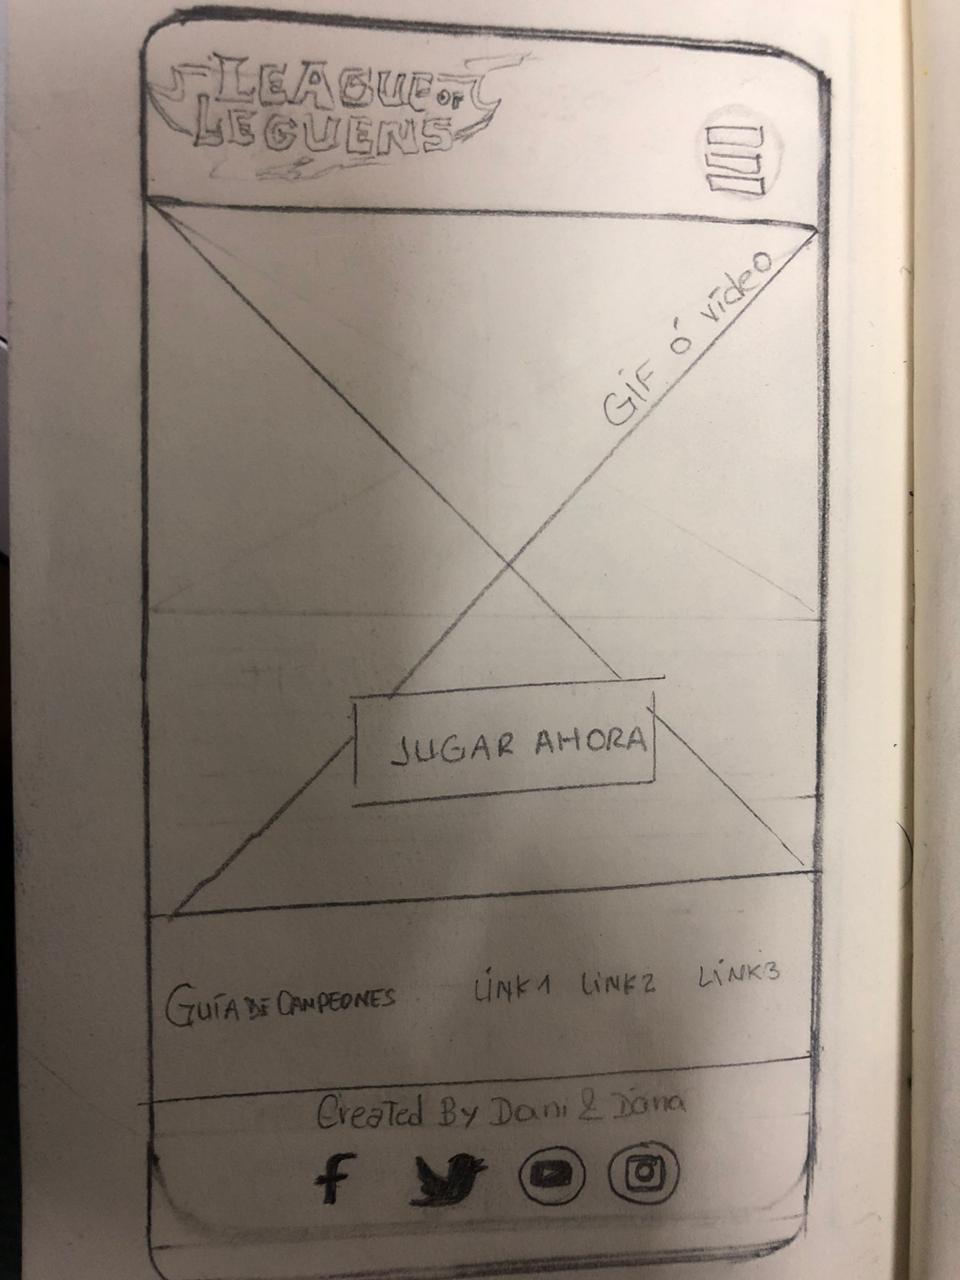 LEAGUE OF
LEGUENS
GIF ó vídeo
JUGAR AHORA
GUÍA DE CAMPEONES LINK1 LINK2 LINK3
Created By Dani & Dana